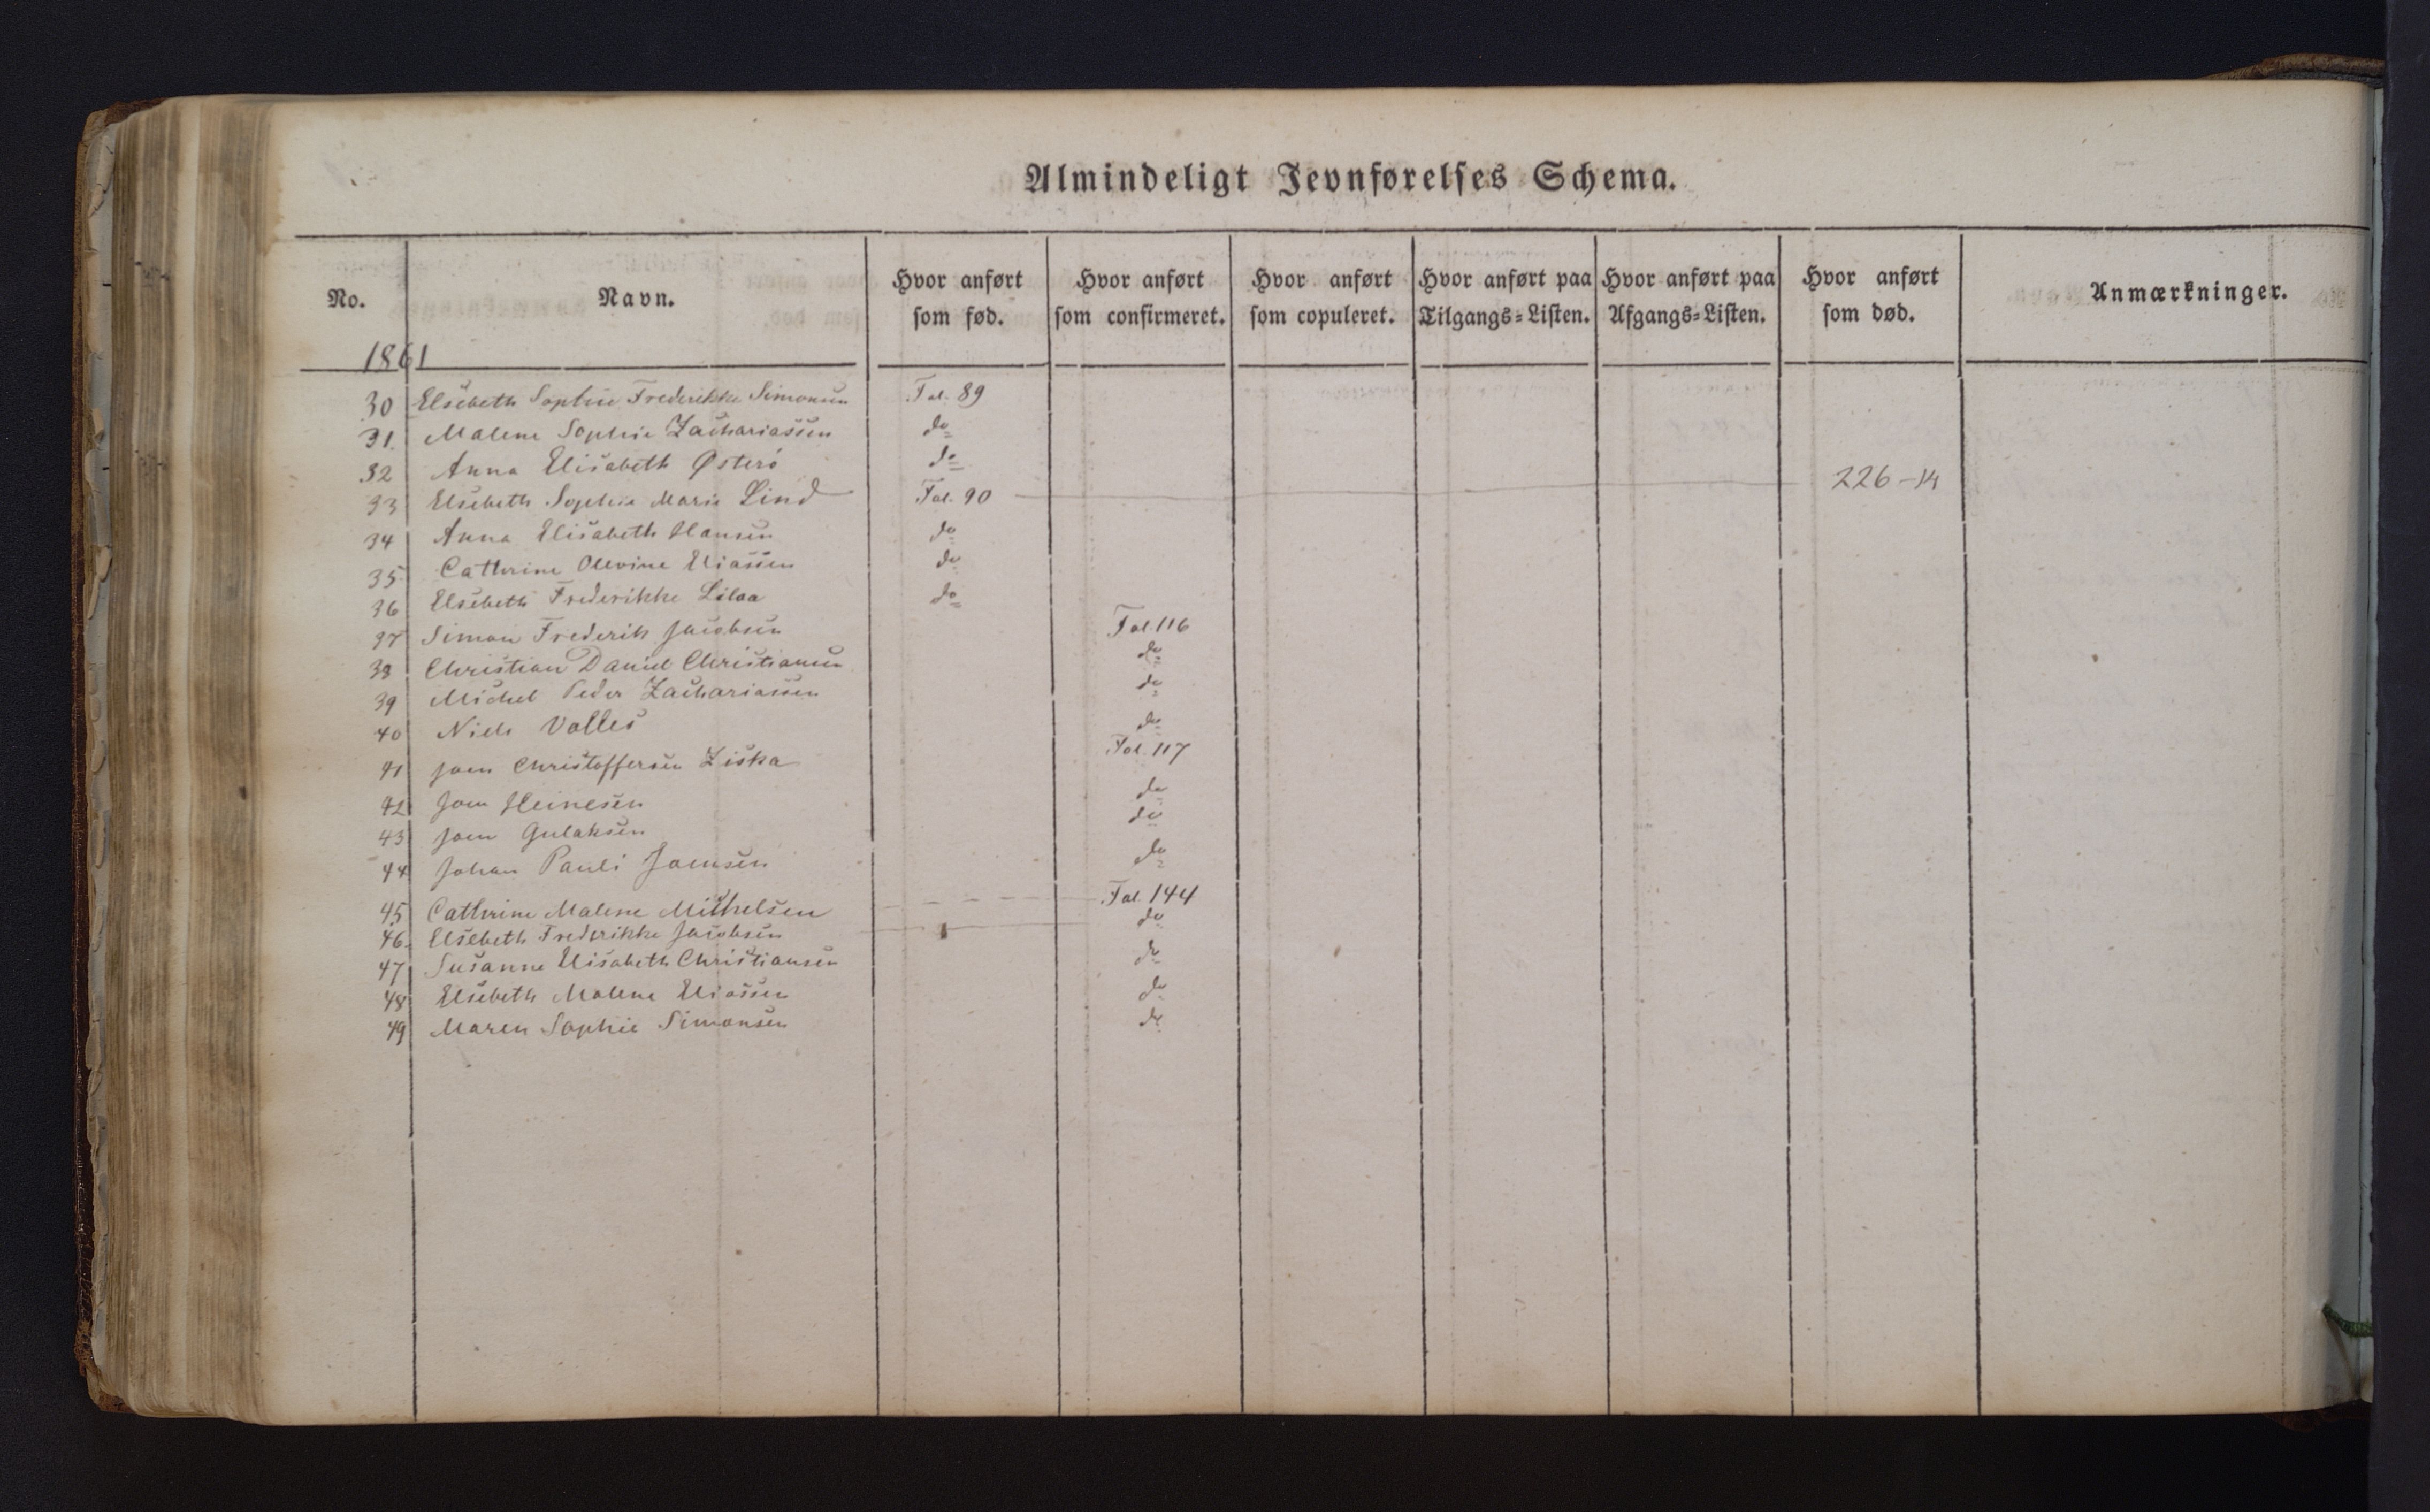 Almindeligt Jevnførelses Schema.
No. Navn. Hvor anført som fød. Hvor anført som confirmeret. Hvor anført som copuleret. Hvor anført paa Tilgangs-Listen. Hvor anført paa Afgangs-Listen. Hvor anført som død. Anmærkninger.
1861
30 Elsebeth Sophie Frederikke Simonsen Fol. 89
31 Malene Sophie Zachariassen do
32 Anna Elisabeth Østerö do
33 Elsebeth Sophie Marie Lind Fol. 90 226-14
34 Anna Elisabeth Hansen do
35 Cathrine Olevine Eliassen do
36 Elsebeth Frederikke Lilaa do
37 Simon Frederik Jacobsen Fol. 116
38 Christian Daniel Christiansen do
39 Michel Peder Zachariassen do
40 Niels do
41 Joen Christoffersen Ziska Fol. 117
42 Joen Heinesen do
43 Joen Gulaksen do
44 Johan Pauli Joensen do
45 Cathrine Malene Michelsen Fol. 144
46 Elsebeth Frederikke Jacobsen do
47 Susanne Elisabeth Christiansen do
48 Elsebeth Malene Eliassen do
49 Maren Sophie Simonsen do